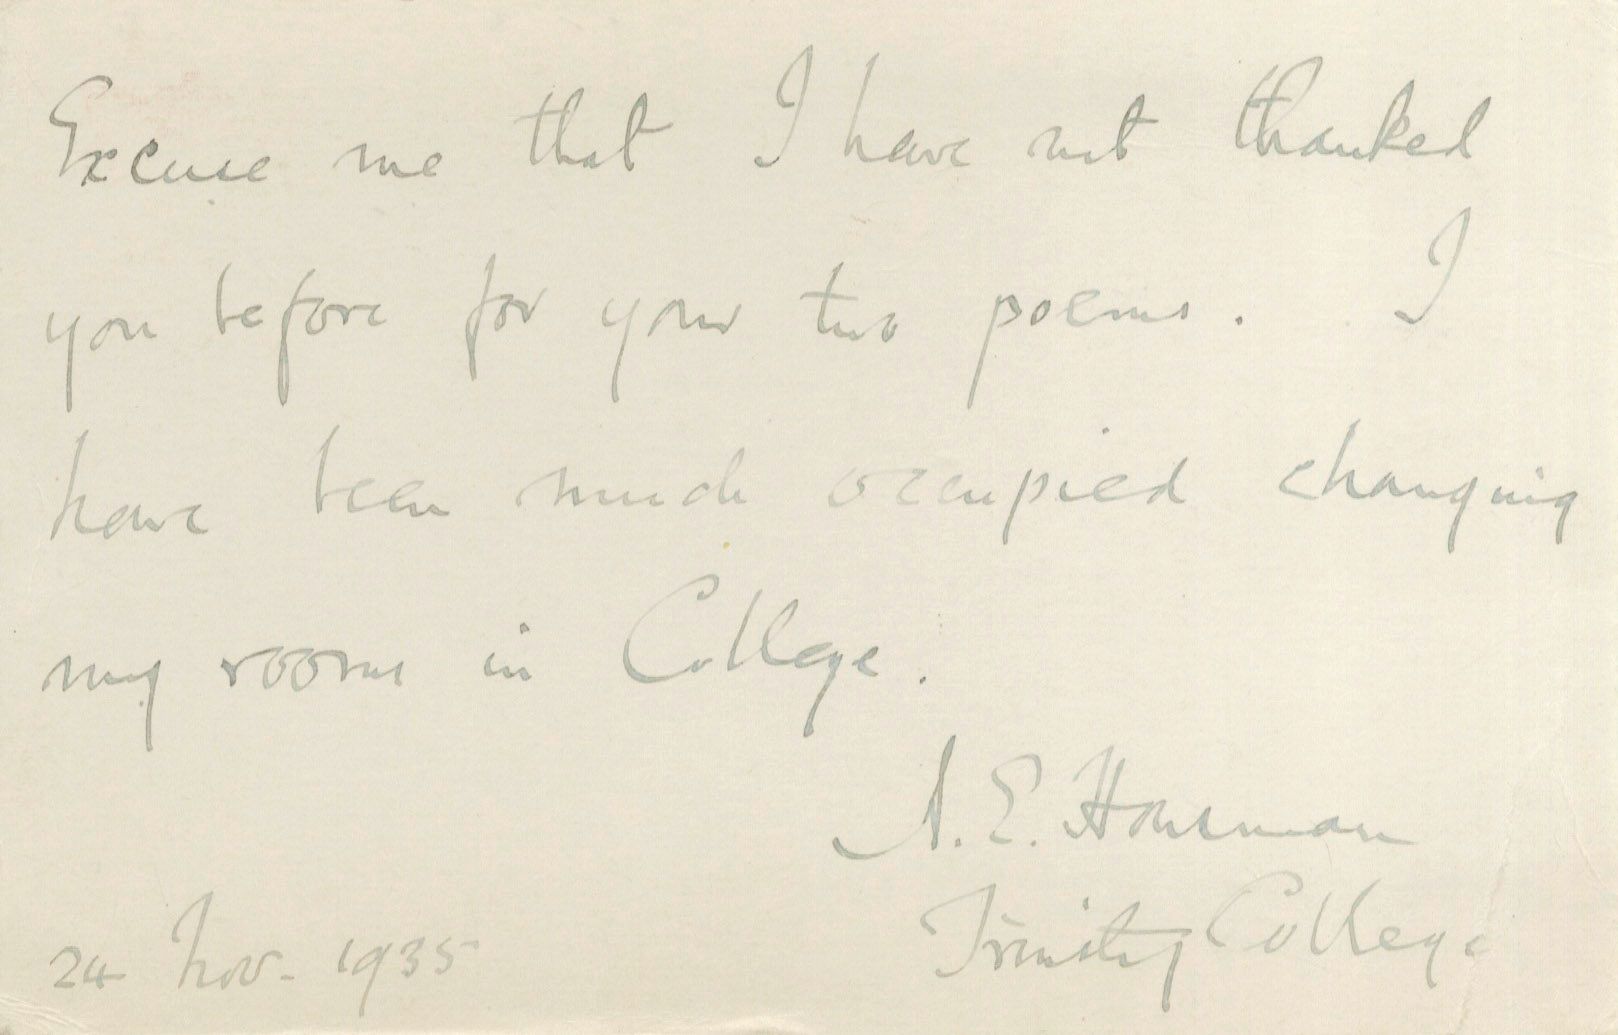 Excuse me that I have not thanked
you before for your two poems. I
have been much occupied changing
my rooms in College.
A. E. Housman
Trinity College
24 Nov. 1935